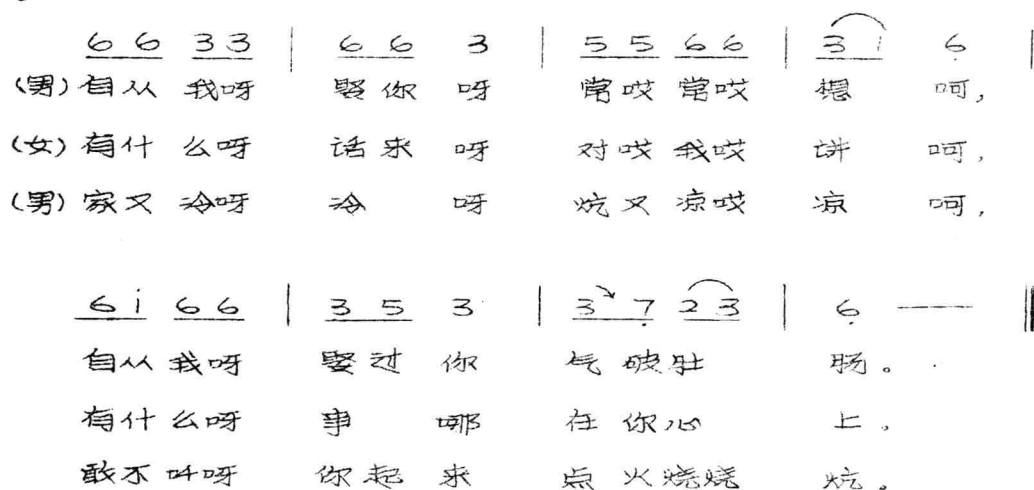 6 6 3 3 | 6 6 3 | 5 5 6 6 | 3 i 6̣ |
(男) 自从 我呀 娶你 呀 常哎 常哎 想 呵,
(女) 有什 么呀 话来 呀 对哎 我哎 讲 呵,
(男) 家又 冷呀 冷 呀 炕又 凉哎 凉 呵,
6 i 6 6 | 3 5 3 | 3 7̣ 2 3 | 6̣ — ‖
自从 我呀 娶过 你 气 破肚 肠。
有什 么呀 事 哪 在 你心 上,
敢不 叫呀 你起 来 点 火烧烧 炕。